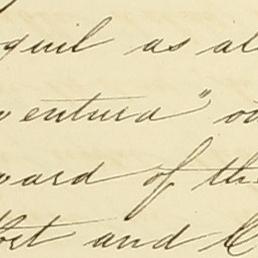 quil as al
ventura" o
ward of the
and